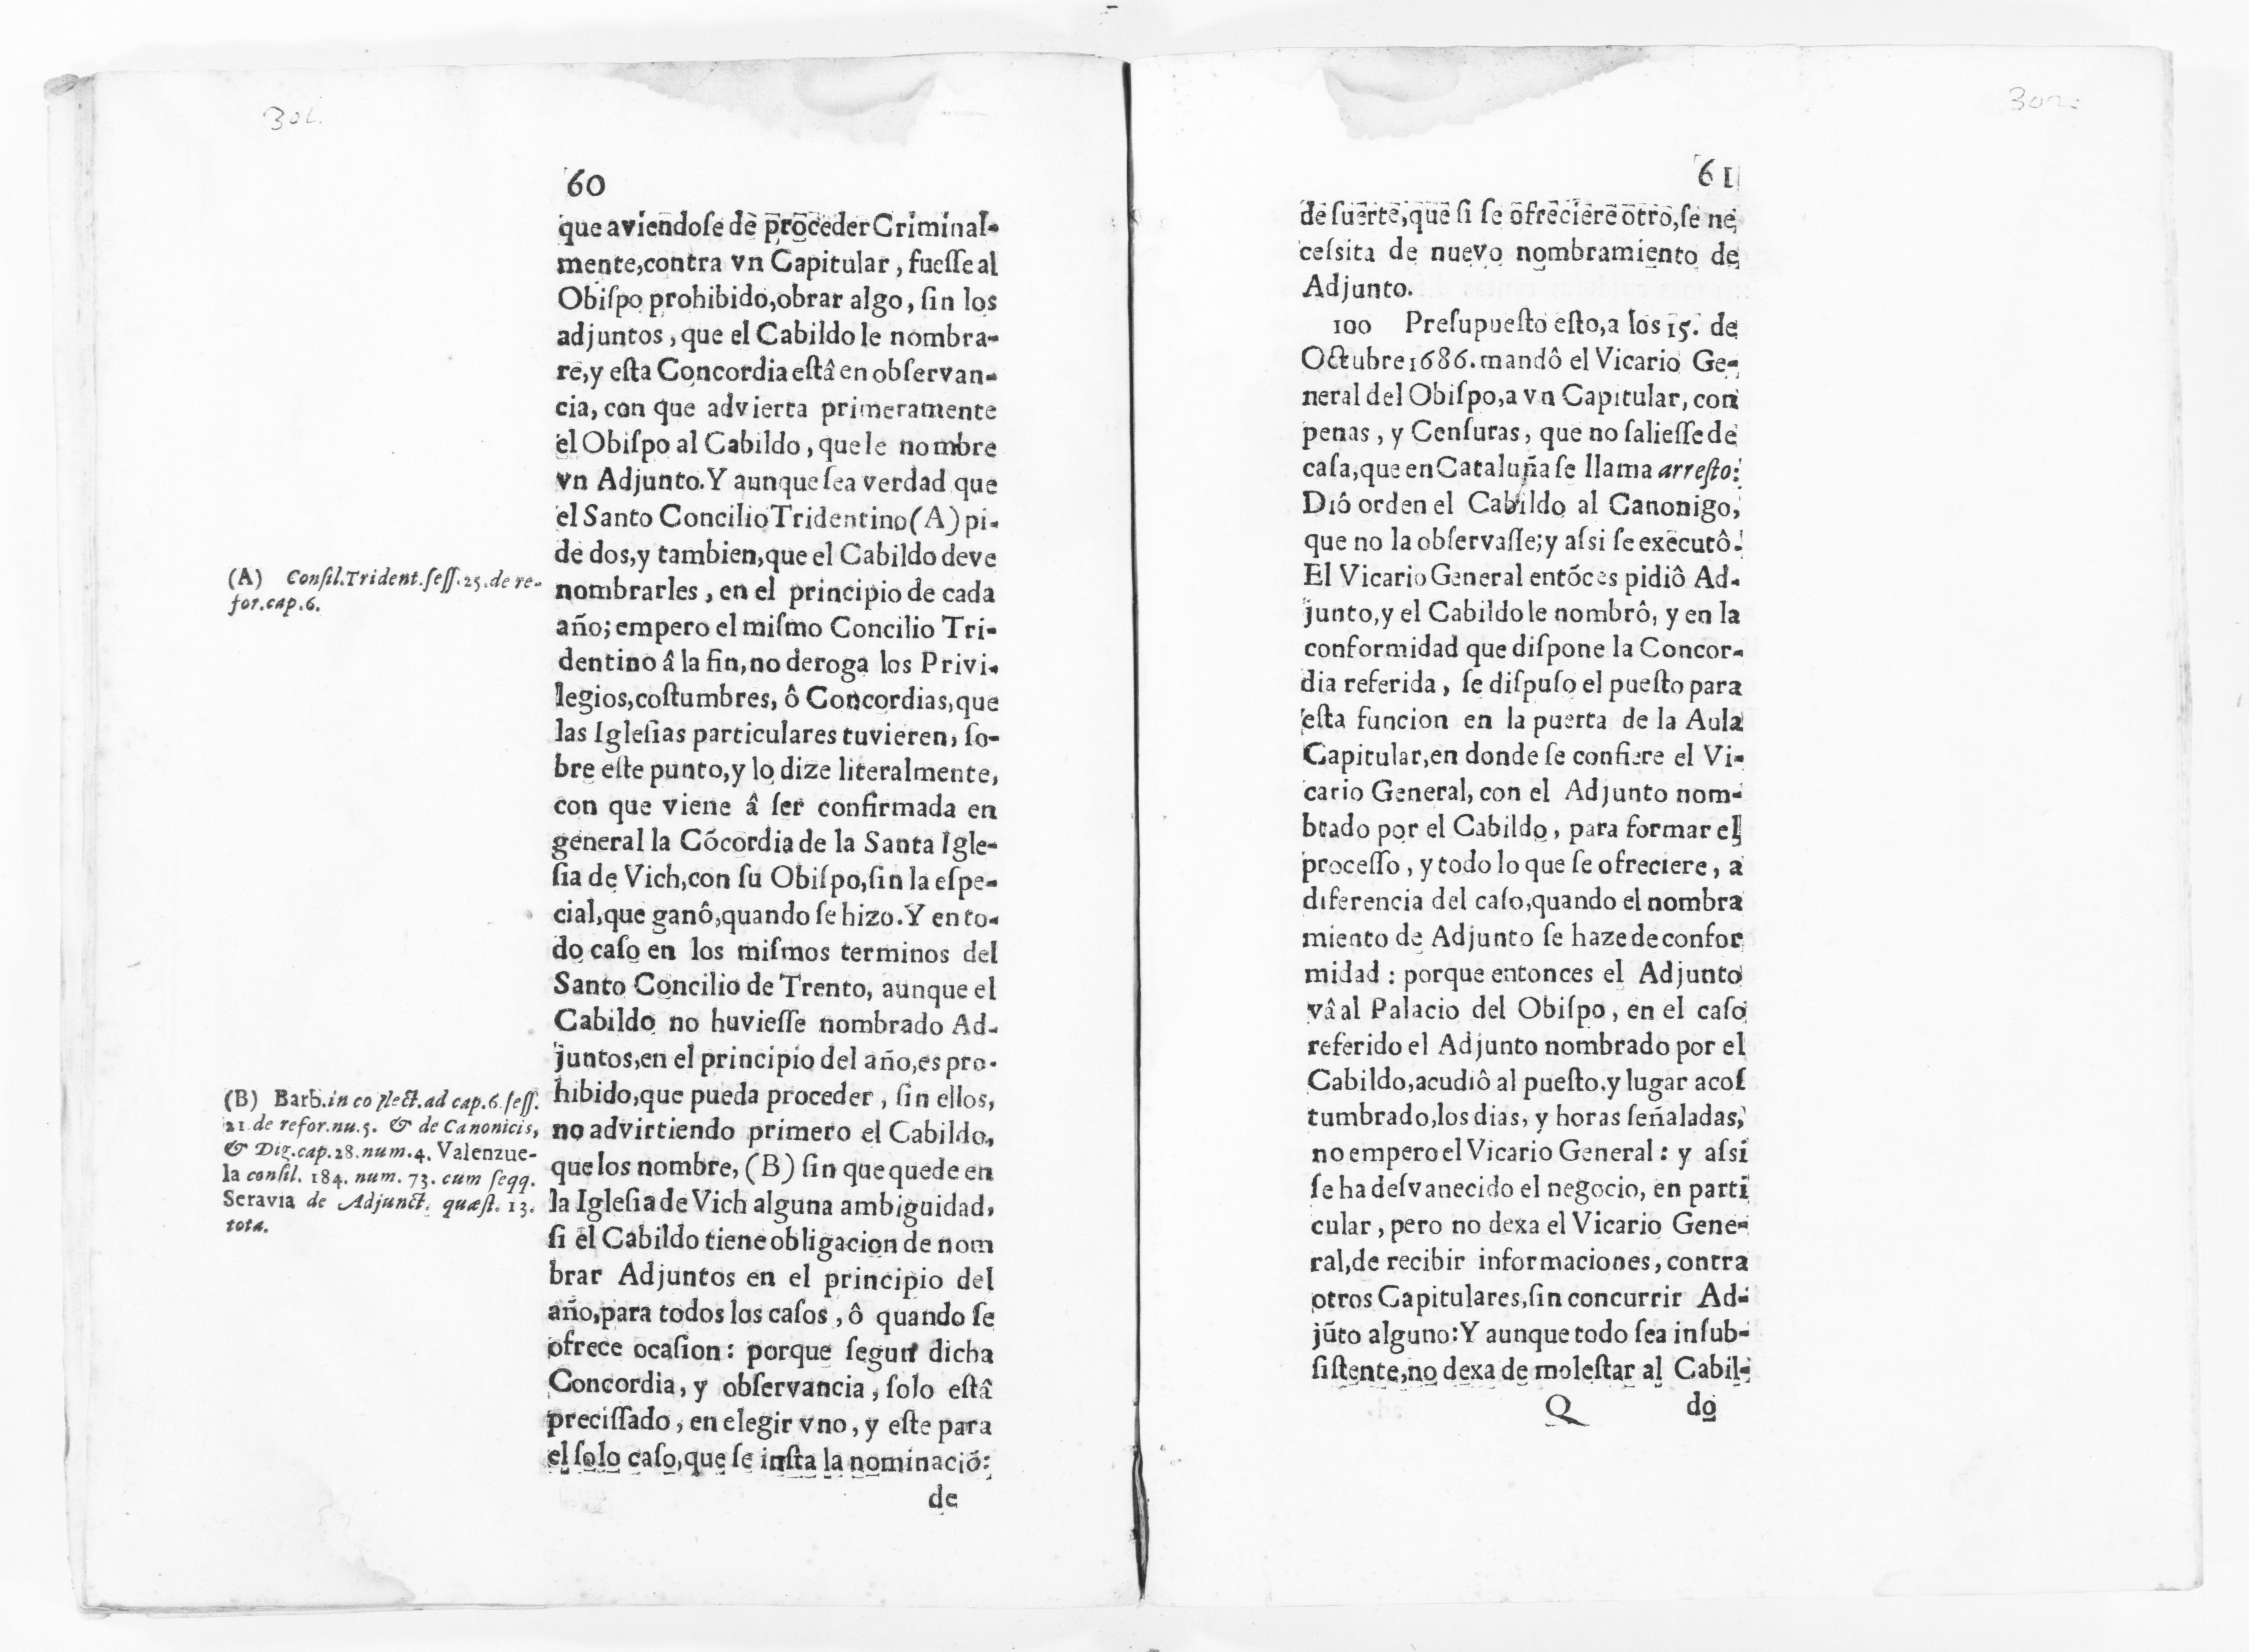 301.
60
que aviendose de proceder Criminal-
mente,contra vn Capitular, fuesse al
Obiſpo prohibido,obrar algo, ſin los
adjuntos, que el Cabildo le nombra-
re,y eſta Concordia eſtâ en obſervan-
cia, con que advierta primeramente
el Obiſpo al Cabildo, que le nombre
vn Adjunto.Y aunque ſea verdad que
el Santo Concilio Tridentino (A) pi-
de dos,y tambien,que el Cabildo deve
nombrarles, en el principio de cada
año; empero el miſmo Concilio Tri-
dentino â la fin,no deroga los Privi-
legios,coſtumbres, ô Concordias,que
las Igleſias particulares tuvieren, ſo-
bre eſte punto,y lo dize literalmente,
con que viene â ſer confirmada en
general la Cõcordia de la Santa Igle-
ſia de Vich,con ſu Obiſpo,ſin la eſpe-
cial,que ganô,quando ſe hizo.Y en to-
do caſo en los miſmos terminos del
Santo Concilio de Trento, aunque el
Cabildo no huvieſſe nombrado Ad-
juntos,en el principio del año,es pro-
hibido,que pueda proceder, ſin ellos,
no advirtiendo primero el Cabildo,
que los nombre, (B) ſin que quede en
la Igleſia de Vich alguna ambiguidad,
ſi el Cabildo tiene obligacion de nom
brar Adjuntos en el principio del
año,para todos los caſos, ô quando ſe
ofrece ocaſion: porque ſegun dicha
Concordia, y obſervancia, ſolo eſtâ
preciſſado, en elegir vno, y eſte para
el ſolo caſo,que ſe inſta la nominaciõ:
de
(A) Conſil.Trident.ſeſſ.25.de re-
for.cap.6.
(B) Barb.in co plect.ad cap.6.ſeſſ.
21.de refor.nu.5. & de Canonicis,
& Dig.cap.28.num.4. Valenzue-
la conſil. 184. num. 73. cum ſeqq.
Seravia de Adjunct. quæſt. 13.
tota.
302.
61
de ſuerte,que ſi ſe ofreciere otro,ſe ne
ceſsita de nuevo nombramiento de
Adjunto.
100 Preſupueſto eſto,a los 15. de
Octubre 1686. mandô el Vicario Ge-
neral del Obiſpo,a vn Capitular, con
penas, y Cenſuras, que no ſalieſſe de
caſa,que en Cataluña ſe llama arreſto:
Diô orden el Cabildo al Canonigo,
que no la obſervaſſe; y aſsi ſe executô.
El Vicario General entõces pidiô Ad-
junto,y el Cabildo le nombrô, y en la
conformidad que diſpone la Concor-
dia referida, ſe diſpuſo el pueſto para
eſta funcion en la puerta de la Aula
Capitular,en donde ſe confiere el Vi-
cario General, con el Adjunto nom-
brado por el Cabildo, para formar el
proceſſo, y todo lo que ſe ofreciere, a
diferencia del caſo,quando el nombra
miento de Adjunto ſe haze de confor
midad: porque entonces el Adjunto
vâ al Palacio del Obiſpo, en el caſo
referido el Adjunto nombrado por el
Cabildo,acudiô al pueſto,y lugar acoſ
tumbrado,los dias, y horas ſeñaladas,
no empero el Vicario General: y aſsi
ſe ha deſvanecido el negocio, en parti
cular, pero no dexa el Vicario Gene-
ral,de recibir informaciones, contra
otros Capitulares,ſin concurrir Ad-
jũto alguno: Y aunque todo ſea inſub-
ſiſtente,no dexa de moleſtar al Cabil-
Q do